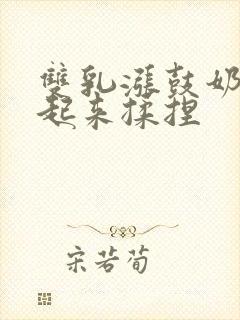 雙乳漲鼓奶
起來揉捏
宋若荀